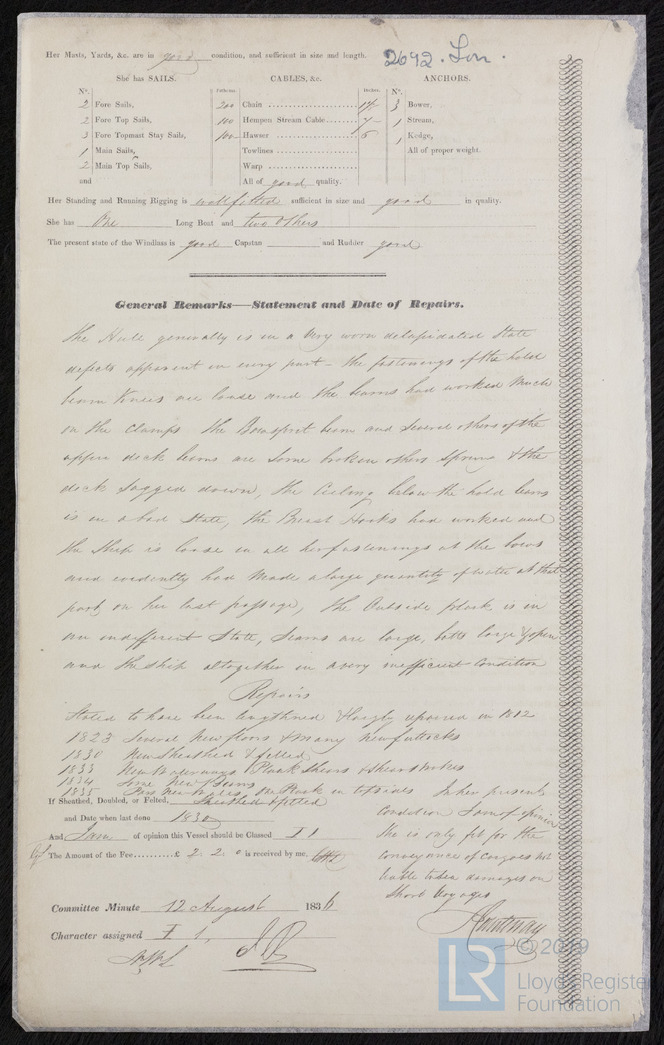 Her Masts, Yards, &c. are in good condition, and sufficient in size and length.
2692. Lon.
She has SAILS.
CABLES, &c.
ANCHORS.
No.
Fathoms.
Inches.
No.
2 Fore Sails,
200 Chain
3 Bower,
2 Fore Top Sails,
100 Hempen Stream Cable 7
1 Stream,
3 Fore Topmast Stay Sails,
100 Hawser 6
1 Kedge,
1 Main Sails,
Towlines
All of proper weight.
2 Main Top Sails,
Warp
and
All of good quality.
Her Standing and Running Rigging is well fitted sufficient in size and good in quality.
She has One Long Boat and two others
The present state of the Windlass is good Capstan and Rudder good
General Remarks—Statement and Date of Repairs.
The Hull generally is in a very worn delapidated State
defects apparent in every part - the fastenings of the hold
beam Knees are loose and the beams had worked much
on the Clamps the Bowsprit beam and several others of the
upper deck beams are some broken others Sprung & the
deck Sagged down, the Ceiling below the hold beams
is in a bad State, the Breast Hooks had worked and
the Ship is loose in all her fastenings at the bows
and evidently had made a large quantity of water at that
part, on her last passage, the Outside plank is in
an indifferent State, Seams are large, butts large & open
and the ship altogether in a very inefficient Condition
Repairs
Stated to have been lengthened & largly repaired in 1812
1823 Several New floors & many new futtocks
1830 New Sheathed & felted
1833 New Waterways Plank Shears &
1834 Some New Beams
1835 New Wales, Plank in topsides
In her present
If Sheathed, Doubled, or Felted, Sheathed & felted
Condition I am of opinion
and Date when last done 1830
she is only fit for the
And I am of opinion this Vessel should be Classed I 1
conveyance of cargoes not
The Amount of the Fee £ 2 . 2 . 0 is received by me,
liable to Sea damages on
Short Voyages
Committee Minute 12 August 1836
Character assigned I 1,
©2019
LR
Lloyd's Register
Foundation